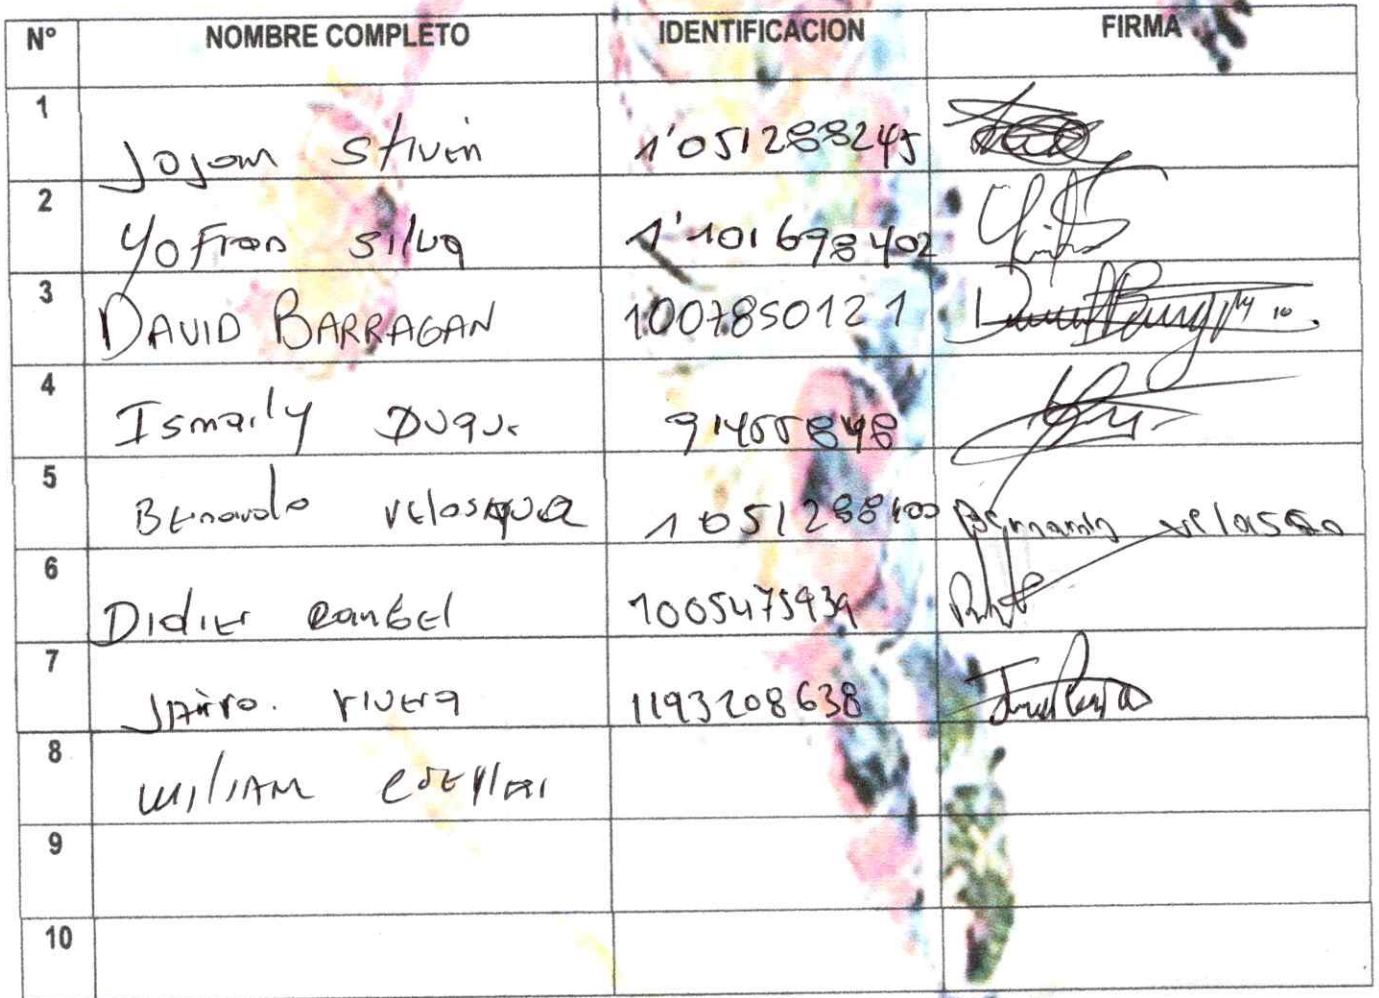 N° NOMBRE COMPLETO IDENTIFICACION FIRMA
1 Jojam Stiven 1'051288245
2 Yofran Silva 1'101698402
3 DAVID BARRAGAN 1007850121
4 Ismaily Duque 91455848
5 Velasquez 1051288400
6 Didier Rangel 1005475939
7 Jairo. rivera 1193208638
8 William
9
10